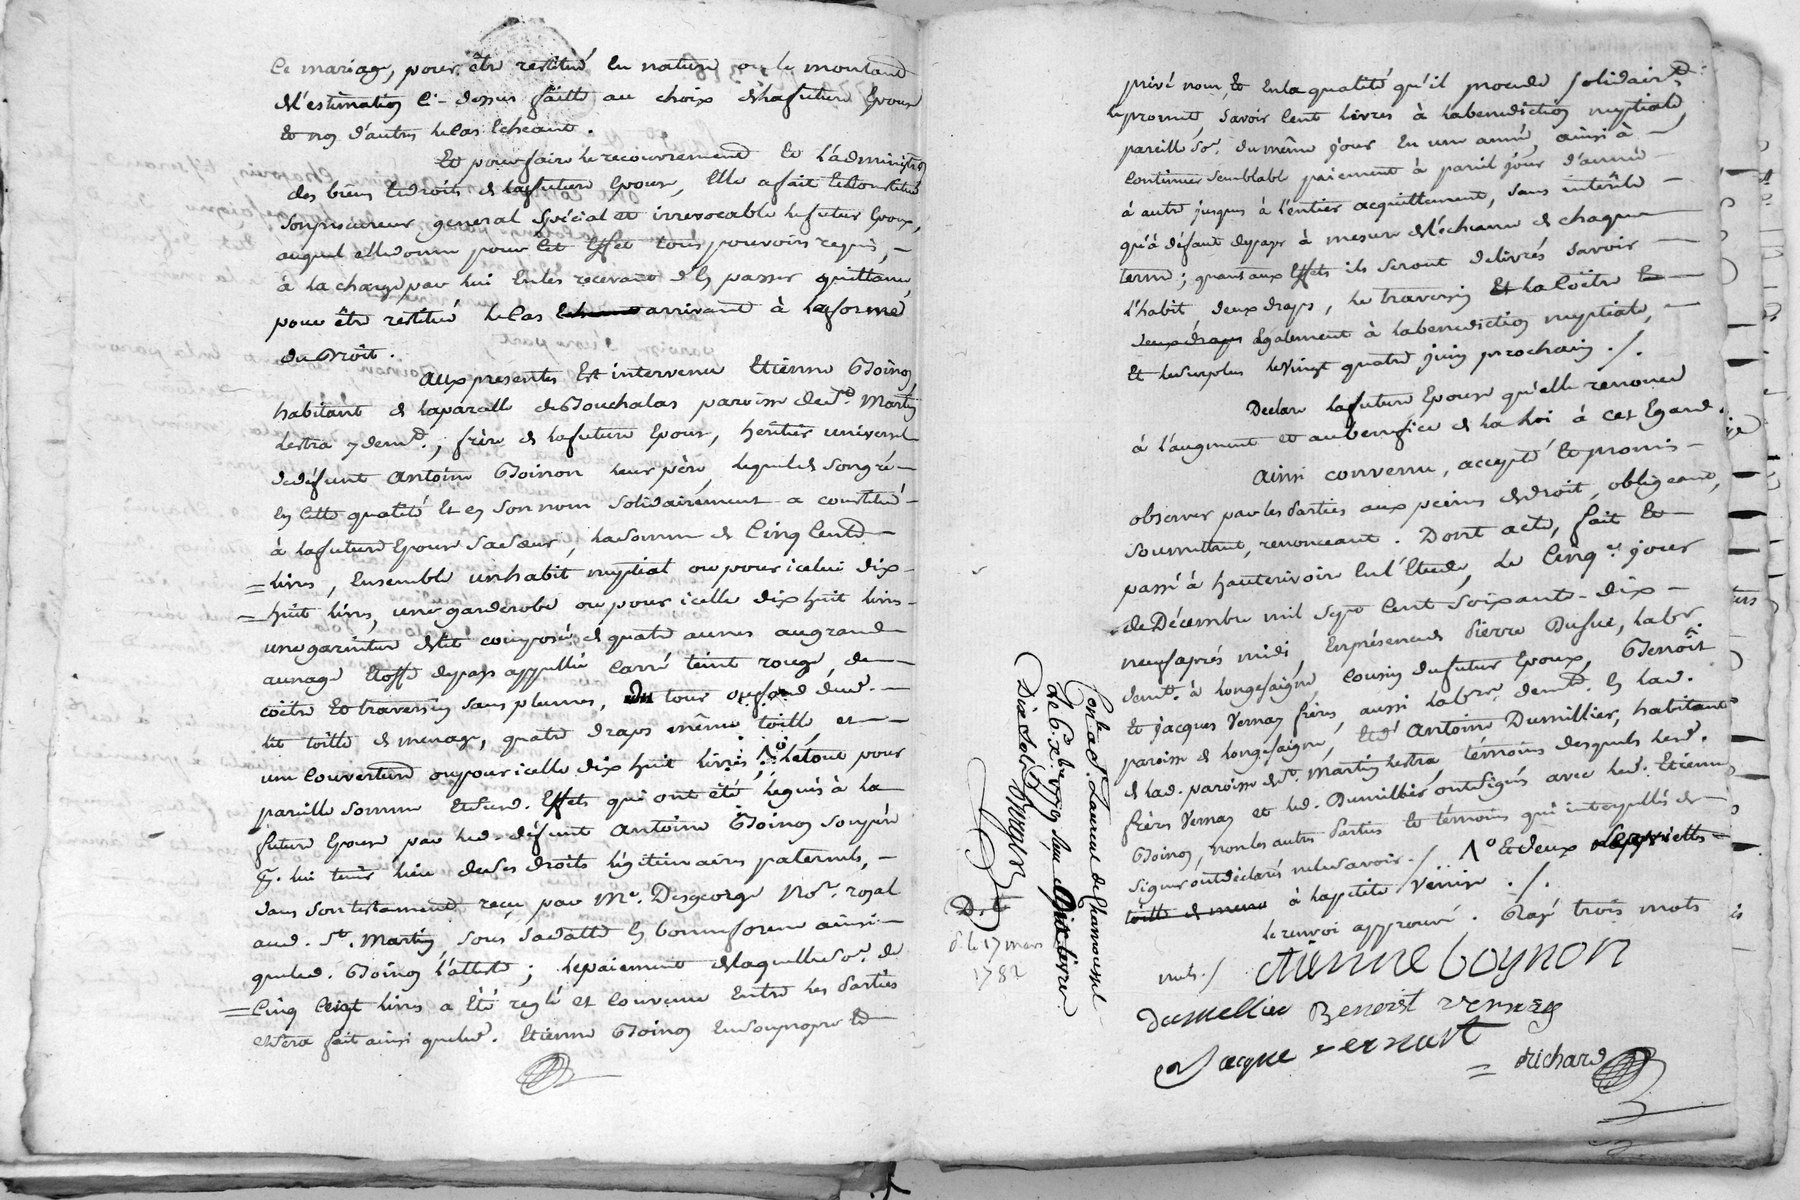 le mariage, pour être restitué en nature ou le montant
de l'estimation ci-dessus faitte au choix de la future Epouse
et non d'autres le cas Echeant.
Et pour faire le recouvrement et l'administron
des biens et droits de la future Epouse, Elle a fait et Constitué
son procureur general Spécial et irrevocable le futur Epoux,
auquel elle donne pour cet Effet tous pouvoirs requis,
à la charge par lui en les recevant d'en passer quittance,
pour être restitué le cas arrivant à la forme
du Droit.
Aux presentes Est intervenu Etienne Goinon
habitant de la parcelle de Bouchalas paroisse de St. Martin
Lestra y demt., frère de la future Epouse, heritier universel
de défunt Antoine Goinon leur père, lequel de son gré
en cette qualité Et en son nom solidairement a constitué
à la future Epouse sa sœur, la somme de Cinq Cent
livres, Ensemble un habit nuptial ou pour icelui dix
huit livres, une garderobe ou pour icelle dix huit livres
une garniture de lit composée de quatre aunes au grand
aunage Etoffe de pays appellée Carré teint rouge, de
coëtre Et traversin sans plumes, un tour ou fond dud.
lit toille de menage, quatre draps même toille, et
une Couverture ou pour icelle dix huit livres, 1° le tout pour
pareille somme Et lesd. Effets qui ont été légués à la
future Epouse par led. défunt Antoine Goinon son père
pr. lui tenir lieu de ses droits légitimaires paternels,
dans son testament reçu par Me. Desgeorge Nore. royal
aud. St. Martin, sous sa datte En bonne forme ainsi
que led. Goinon l'atteste; le paiement de laquelle se. de
Cinq Cent livres a Été reglé et Convenu Entre les Parties
et sera fait ainsi que led. Etienne Goinon En son propre Et
privé nom, et En la qualité qu'il procede solidairt.
le promet, savoir Cent livres à la benediction nuptiale,
pareille se. du même jour En une année, ainsi à
Continuer semblable paiement à pareil jour d'année
à autre jusques à l'entier acquittement, sans intérêts
qu'à défaut de payer à mesure de l'échéance de chaque
terme; quant aux Effets ils seront delivrés Savoir
l'habit, deux draps, le traversin Et la Coëtre Et
deux draps Egalement à la benediction nuptiale,
Et le surplus le vingt quatre juin prochain ./.
Declare la future Epouse qu'elle renonce
à l'augment et au benefice de la Loi à cet Egard.
Ainsi convenu, accepté Et promis
observer par les Parties aux peines de droit, obligeant,
soumettant, renonceant. Dont acte, fait Et
passé à hauterivoire En l'Etude, Le Cinqe. jour
de Décembre mil sept Cent soixante-dix
neuf après midi, En présence de Pierre Dufue, labr.
demt. à Longesaigne Cousin du futur Epoux, Benoît
Et Jacques Vernay frères, aussi labrs. demt. En lad.
paroisse de Longesaigne, Et d' Antoine Dumillier, habitant
de lad. paroisse de St. Martin Lestra temoins desquels lesd.
frères Vernay et led. Dumillier ont signés avec led. Etienne
Goinon, non les autres Parties Et témoins qui interpellés de
signer ont déclarés ne le savoir ./. 1° Et deux
toille de menage à la petite Venise ./.
le renvoi approuvé. Rayé trois mots
nuls ./. etienne Goynon
Dumellier Benoist vernay
Jacque vernay
Richard
Conlé à St. Laurent de Chamousset
Le 6 xbre 1779 Reçu Dix livres
Dix sols
D. t.
d. le 17 mars
1782